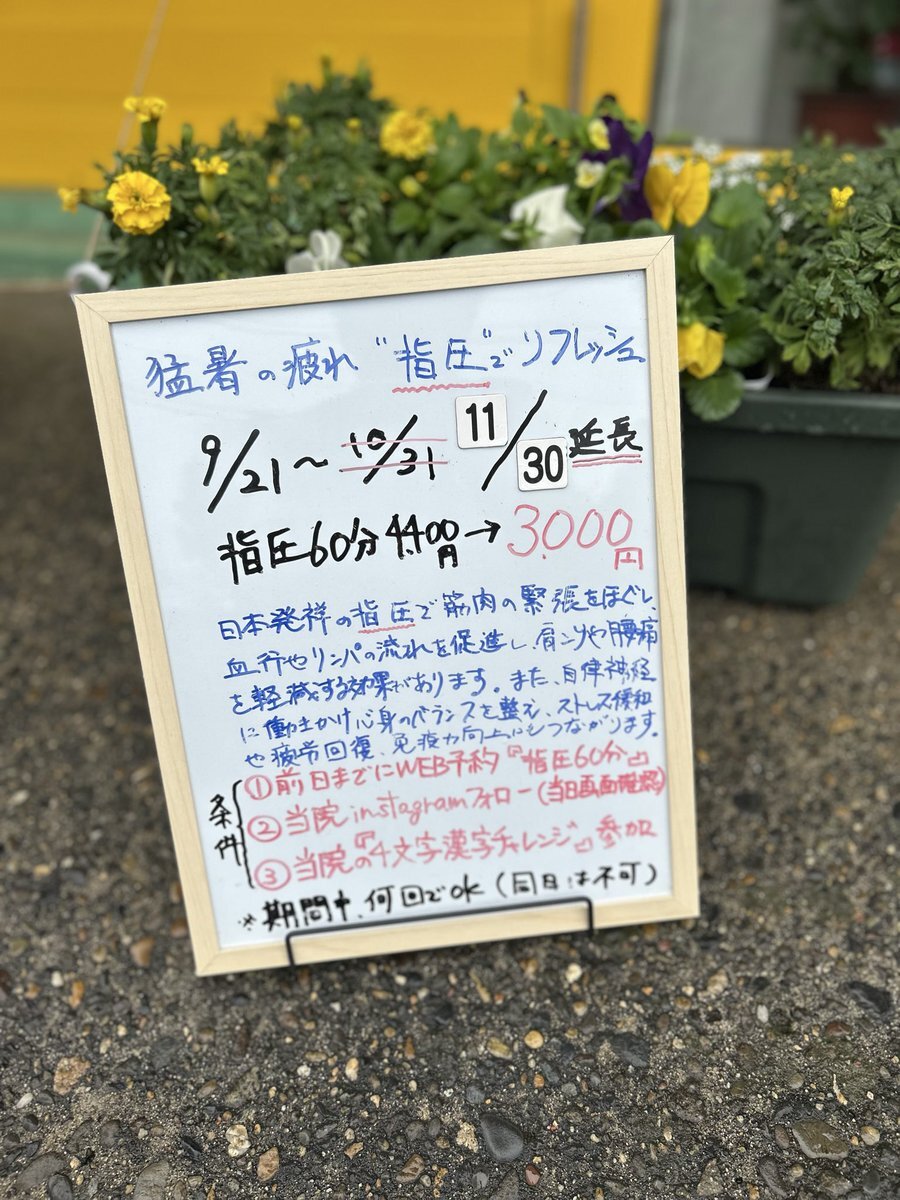 猛暑の疲れ"指圧"でリフレッシュ
9/21〜10/31 11/30延長
指圧60分4.400円→3.000円
日本発祥の指圧で筋肉の緊張をほぐし、
血行やリンパの流れを促進し、肩コリや腰痛
を軽減する効果があります。また、自律神経
に働きかけ心身のバランスを整え、ストレス緩和
や疲労回復、免疫力向上にもつながります。
条件
①前日までにWEB予約『指圧60分』
②当院instagramフォロー(当日画面確認)
③当院の『4文字漢字チャレンジ』参加
※期間中、何回でもOK(同日は不可)